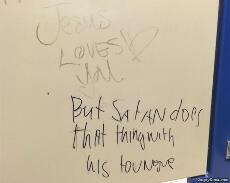 Jesus
LOVES!!
YOU
But SATAN does
that thing with
his toungue